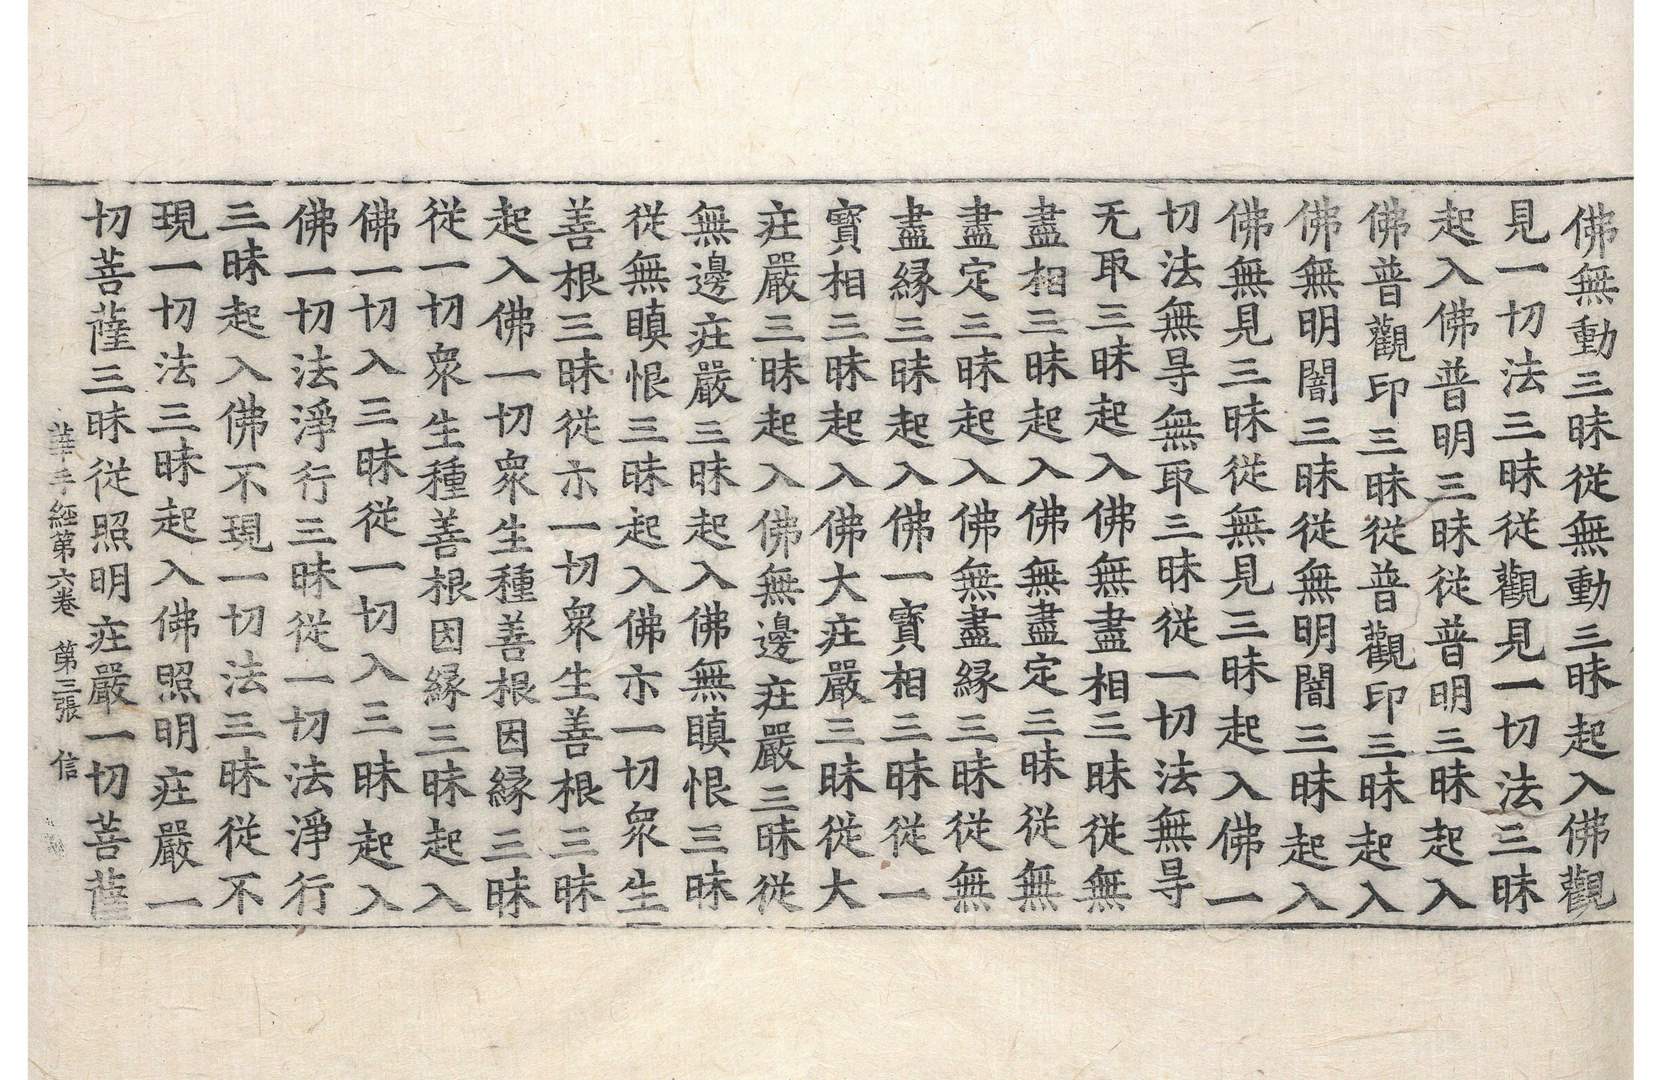 佛無動三昧從無動三昧起入佛觀
見一切法三昧從觀見一切法三昧
起入佛普明三昧從普明三昧起入
佛普觀印三昧從普觀印三昧起入
佛無明闇三昧從無明闇三昧起入
佛無見三昧從無見三昧起入佛一
切法無㝵無取三昧從一切法無㝵
无取三昧起入佛無盡相三昧從無
盡相三昧起入佛無盡定三昧從無
盡定三昧起入佛無盡縁三昧從無
盡縁三昧起入佛一寳相三昧從一
寳相三昧起入佛大㽵嚴三昧從大
㽵嚴三昧起入佛無邊㽵嚴三昧從
無邊㽵嚴三昧起入佛無瞋恨三昧
從無瞋恨三昧起入佛示一切衆生
善根三昧從示一切衆生善根三昧
起入佛一切衆生種善根因縁三昧
從一切衆生種善根因縁三昧起入
佛一切入三昧從一切入三昧起入
佛一切法淨行三昧從一切法淨行
三昧起入佛不現一切法三昧從不
現一切法三昧起入佛照明㽵嚴一
切菩薩三昧從照明㽵嚴一切菩薩
華手經第六卷 第三張 信